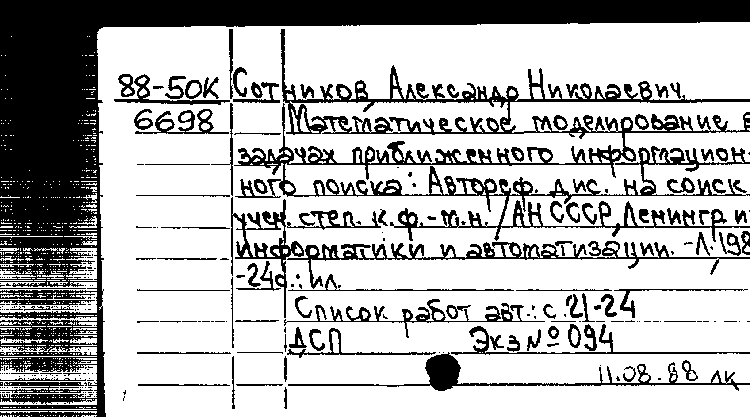 88-50К Сотников Александр Николаевич.
6698 Математическое моделирование в
задачах приближенного информацион-
ного поиска: Автореф. дис. на соиск
учен. степ. к.ф.-м.н. /АН СССР, Ленингр и
информатики и автоматизации. -Л. 198
-24с.: ил.
Список работ авт.: с 21-24
ДСП Экз № 094
11.08.88 лк